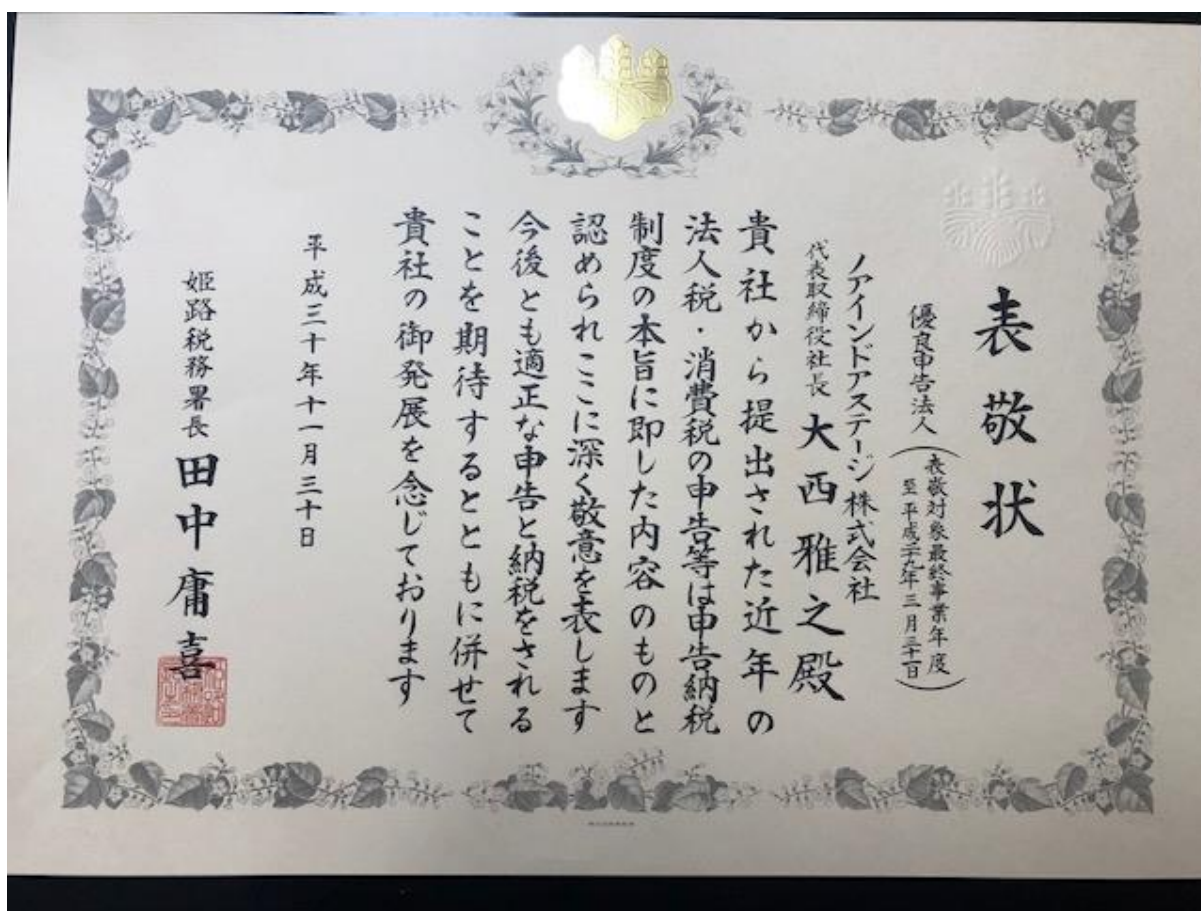 表敬状
優良申告法人
(表敬対象最終事業年度
至平成二十九年三月三十一日)
ノアインドアステージ株式会社
代表取締役社長 大西雅之殿
貴社から提出された近年の
法人税・消費税の申告等は申告納税
制度の本旨に即した内容のものと
認められここに深く敬意を表します
今後とも適正な申告と納税をされる
ことを期待するとともに併せて
貴社の御発展を念じております
平成三十年十一月三十日
姫路税務署長 田中庸喜